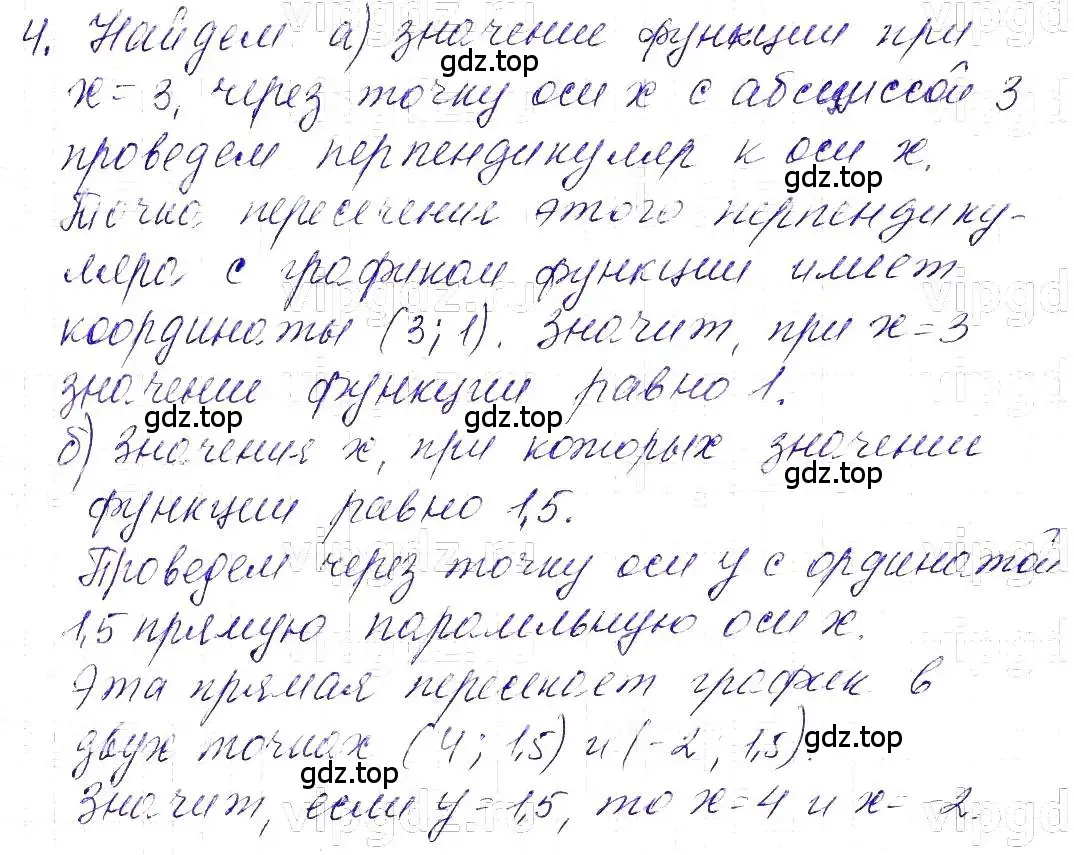 4. Найдем а) значение функции при
x = 3, через точку оси x с абсциссой 3
проведем перпендикуляр к оси x.
Точка пересечение этого перпендику-
ляра с графиком функции имеет
координаты (3; 1). Значит, при x = 3
значении функции равно 1.
б) Значения x, при которых значении
функции равно 1,5.
Проведем через точку оси y с ординатой
1,5 прямую паралельную оси x.
Эта прямая пересекает график в
двух точках (4; 1,5) и (-2; 1,5).
Значит, если y = 1,5, то x = 4 и x = -2.
gdz.top
gdz.top
gdz.top
gdz.top
gdz.top
gdz.top
gdz.top
gdz.top